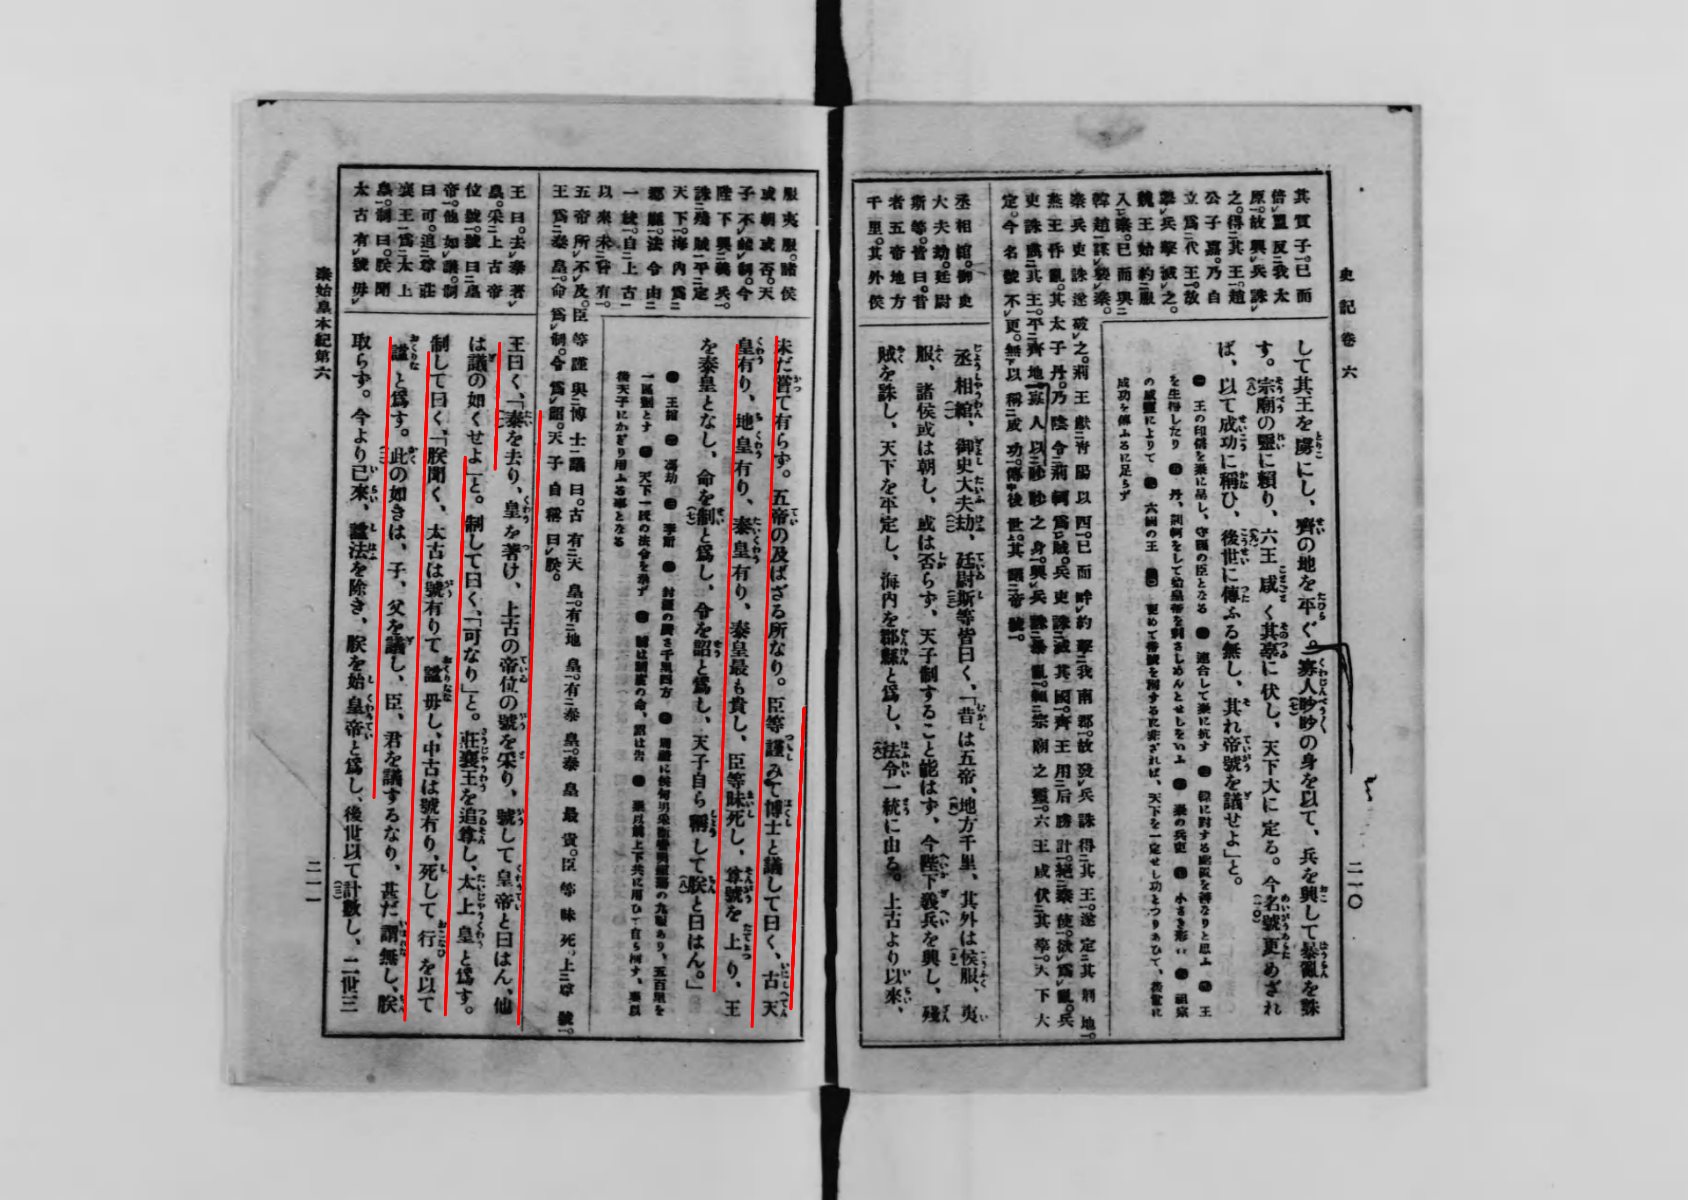 史記卷六
二一〇
其質子。已而
倍盟反我太
原。故興兵誅
之。得其王。趙
公子嘉。乃自
立爲代王。故
擧兵擊滅之。
魏王始約服
入秦。已而與
韓趙謀襲秦。
秦兵吏誅遂破之。荊王獻靑陽以西。已而畔約擊我南郡。故發兵誅得其王。遂定其荊地。
燕王昏亂。其太子丹。乃陰令荊軻爲賊。兵吏誅滅其國。齊王用后勝計。絕秦使。欲爲亂。兵
吏誅虜其王。平齊地。寡人以眇眇之身。興兵誅暴亂。賴宗廟之靈。六王咸伏其辜。天下大
定。今名號不更。無以稱成功。傳後世。其議帝號。
して其王を虜にし、齊の地を平ぐ。寡人眇眇の身を以て、兵を興して暴亂を誅
す。宗廟の靈に賴り、六王咸く其辜に伏し、天下大に定る。今名號更めざれ
ば、以て成功に稱ひ、後世に傳ふる無し、其れ帝號を議せよ」と。
王の印信を秦に呈し、守護の臣となる 連合して秦に抗す 王
を生擒したり 丹、荊軻をして始皇帝を刺さしめんとせしをいふ 秦の兵吏 小さき形 祖宗
の威靈によりて 六國の王 更めて帝號を附するに非ざれば、天下を一定せし功とつりあひて、後世に
成功を傳ふるに足らず
丞相綰。御史
大夫劫。廷尉
斯等。皆曰。昔
者五帝地方
千里。其外侯
丞相綰、御史大夫劫、廷尉斯等皆曰く、「昔は五帝、地方千里、其外は侯服、夷
服、諸侯或は朝し、或は否らず、天子制すること能はず、今陛下義兵を興し、殘
賊を誅し、天下を平定し、海內を郡縣と爲し、法令一統に由る。上古より以來、
服夷服。諸侯
或朝或否。天
子不能制。今
陛下興義兵。
誅殘賊平定
天下。海內爲
郡縣。法令由
一統。自上古
以來未嘗有。
五帝所不及。臣等謹與博士議曰。古有天皇。有地皇。有泰皇。泰皇最貴。臣等昧死。上尊號。
王爲泰皇。命爲制。令爲詔。天子自稱曰朕。
未だ嘗て有らず。五帝の及ばざる所なり。臣等謹みて博士と議して曰く、古天
皇有り、地皇有り、泰皇有り、泰皇最も貴し、臣等昧死し、尊號を上り、王
を泰皇となし、命を制と爲し、令を詔と爲し、天子自ら稱して朕と曰はん。」
王綰 馮劫 李斯 封疆の廣さ千里四方
一區割とす 天下一統の法令を奉ず 制は制度の命、詔は告
後天子にかぎり用ふる事となる
王曰。去泰著
皇。采上古帝
位號。號曰皇
帝。他如議。制
曰可。追尊莊
襄王爲太上
皇。制曰。朕聞
太古有號毋
王曰く、「泰を去り、皇を著け、上古の帝位の號を采り、號して皇帝と曰はん、他
は議の如くせよ」と。制して曰く、「可なり」と。莊襄王を追尊し、太上皇と爲す。
制して曰く、「朕聞く、太古は號有りて諡毋し、中古は號有り、死して行を以て
諡と爲す。此の如きは、子、父を議し、臣、君を議するなり、甚だ謂無し、朕
取らず。今より已來、諡法を除き、朕を始皇帝と爲し、後世以て計數し、二世三
秦始皇本紀第六
二一一